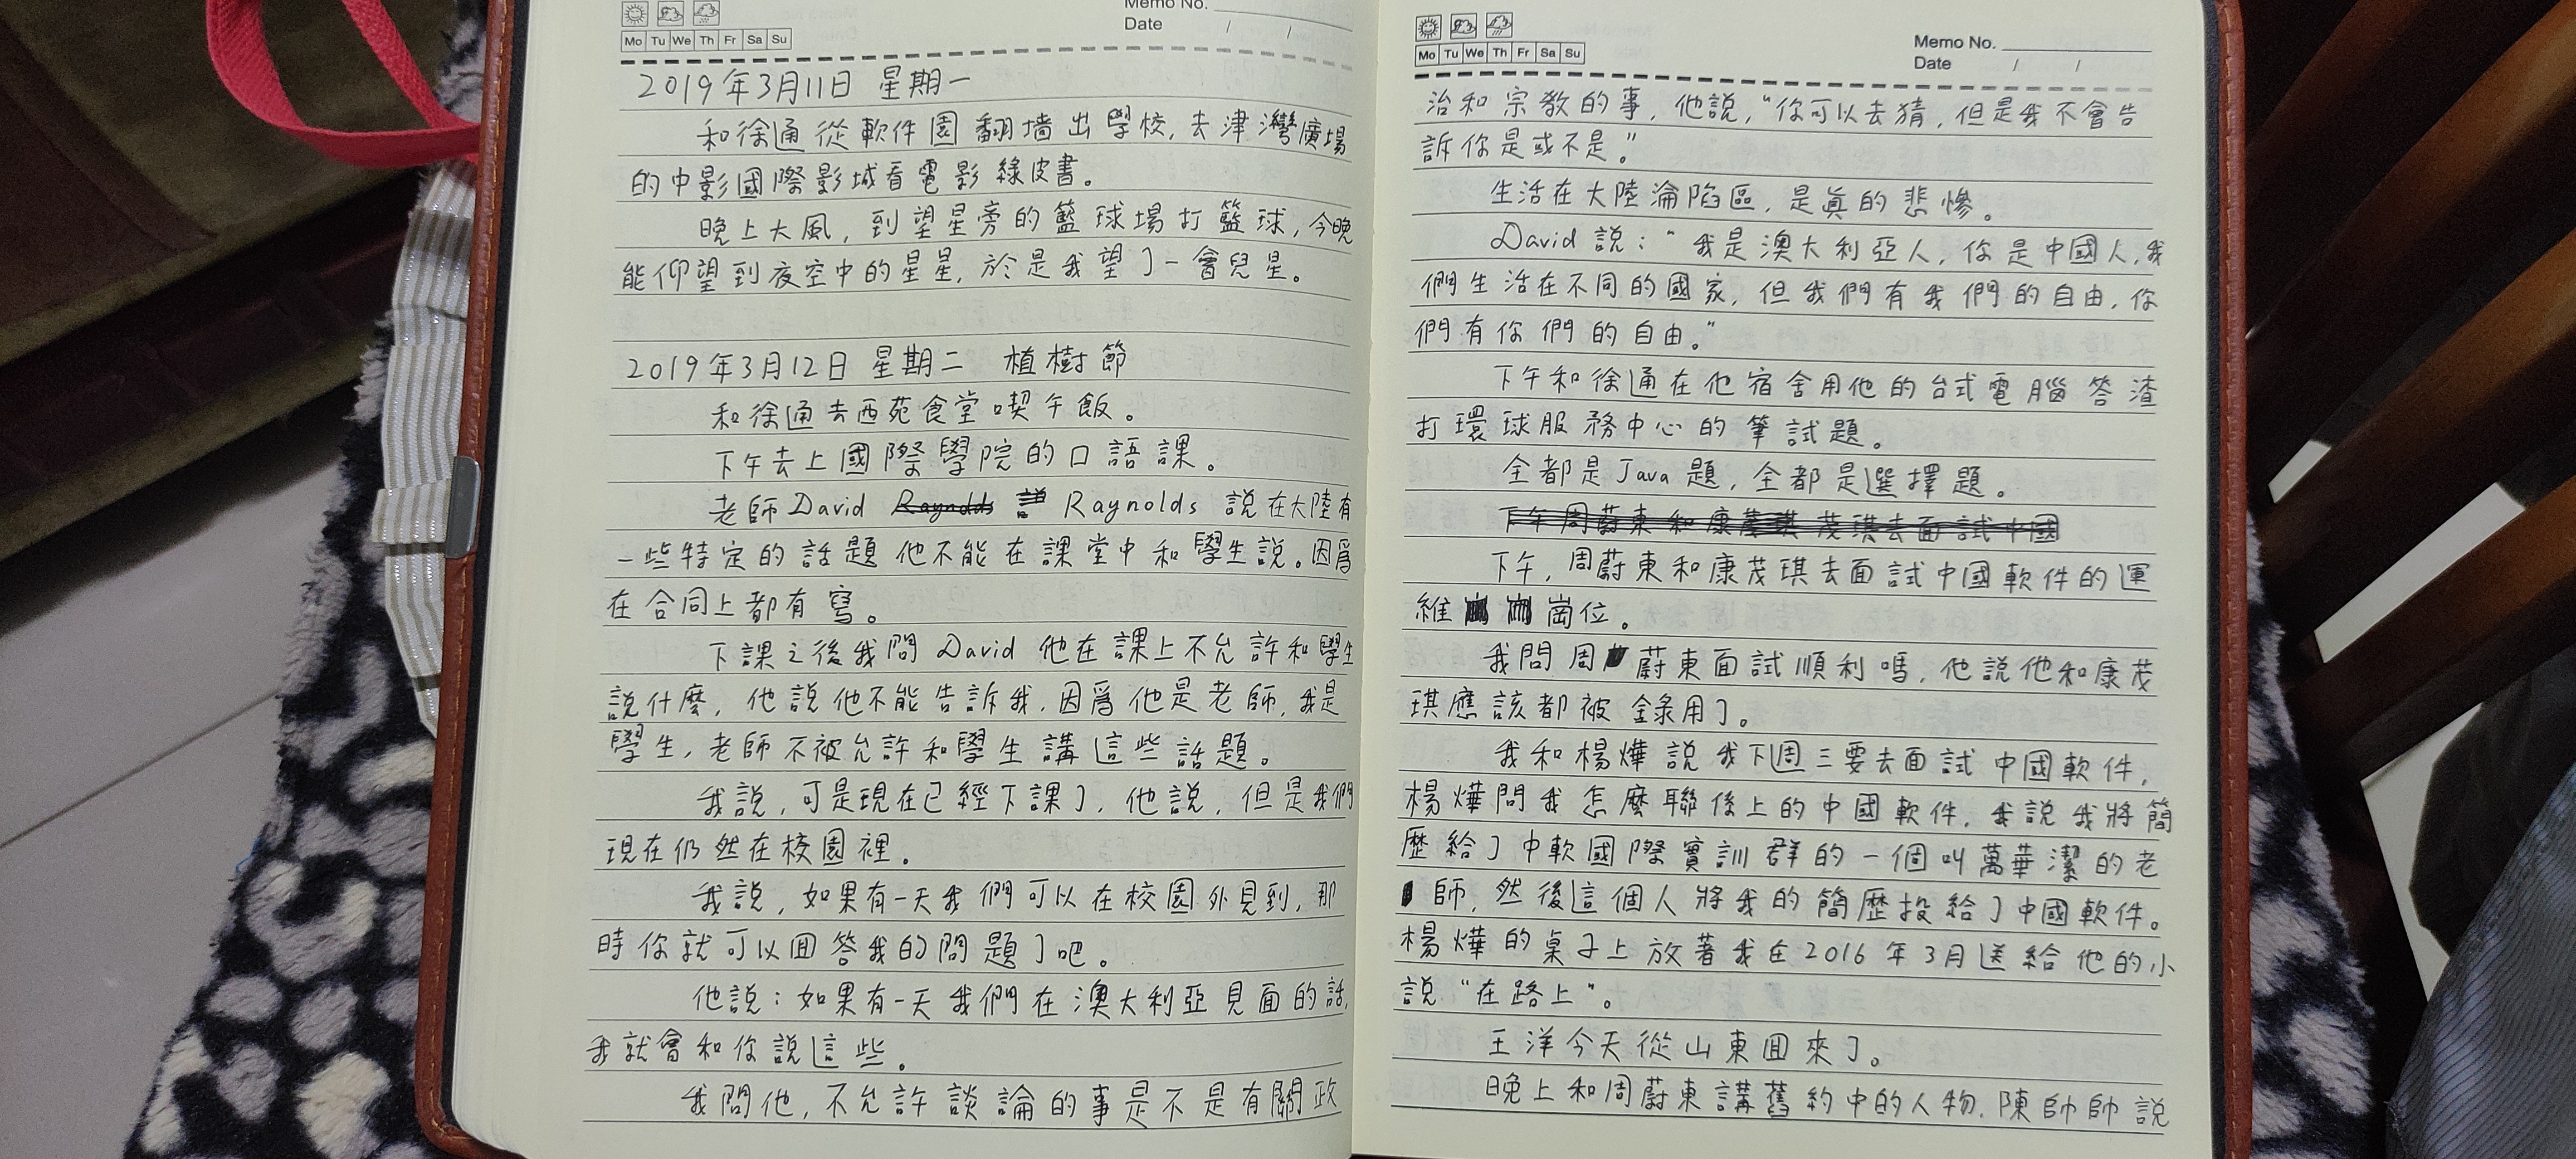 Mo Tu We Th Fr Sa Su
Memo No.
Date / /
2019年3月11日 星期一
和徐通從軟件園翻墻出學校,去津灣廣場
的中影國際影城看電影綠皮書。
晚上大風,到望星旁的籃球場打籃球,今晚
能仰望到夜空中的星星,於是我望了一會兒星。
2019年3月12日 星期二 植樹節
和徐通去西苑食堂喫午飯。
下午去上國際學院的口語課。
老師David Raynolds 說 Raynolds 說在大陸有
一些特定的話題他不能在課堂中和學生說。因爲
在合同上都有寫。
下課之後我問David他在課上不允許和學生
說什麼,他說他不能告訴我,因爲他是老師,我是
學生,老師不被允許和學生講這些話題。
我說,可是現在已經下課了,他說,但是我們
現在仍然在校園裡。
我說,如果有一天我們可以在校園外見到,那
時你就可以囬答我的問題了吧。
他說:如果有一天我們在澳大利亞見面的話,
我就會和你說這些。
我問他,不允許談論的事是不是有關政
Mo Tu We Th Fr Sa Su
Memo No.
Date / /
治和宗教的事,他說,“你可以去猜,但是我不會告
訴你是或不是。”
生活在大陸淪陷區,是眞的悲慘。
David說:“我是澳大利亞人,你是中國人,我
們生活在不同的國家,但我們有我們的自由,你
們有你們的自由。”
下午和徐通在他宿舍用他的台式電腦答渣
打環球服務中心的筆試題。
全都是Java題,全都是選擇題。
下午周蔚東和康茂琪去面試中國
下午,周蔚東和康茂琪去面試中國軟件的運
維崗位。
我問周蔚東面試順利嗎,他說他和康茂
琪應該都被錄用了。
我和楊燁說我下週三要去面試中國軟件,
楊燁問我怎麼聯係上的中國軟件,我說我將簡
歷給了中軟國際實訓群的一個叫萬華潔的老
師,然後這個人將我的簡歷投給了中國軟件。
楊燁的桌子上放著我在2016年3月送給他的小
說“在路上”。
王洋今天從山東囬來了。
晚上和周蔚東講舊約中的人物,陳帥帥說